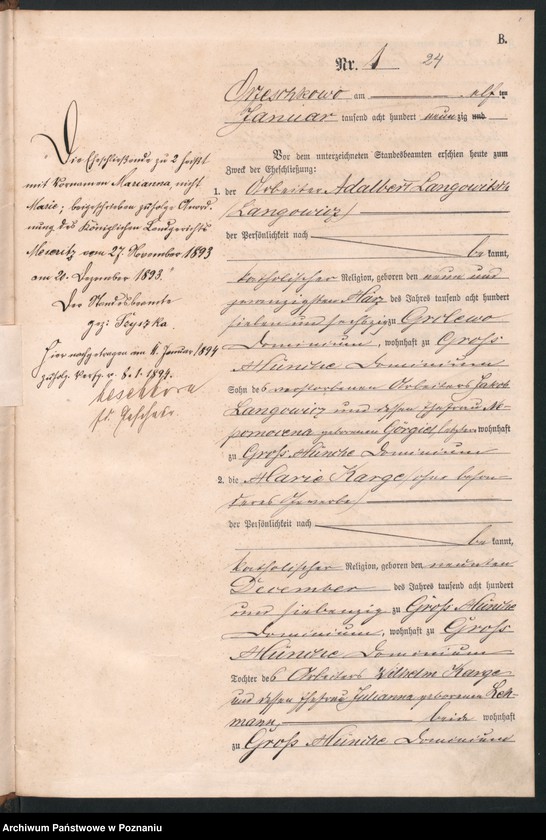 B.
Nr. 1 24
Orzeschkowo am elf ten
Januar tausend acht hundert neunzig und
Vor dem unterzeichneten Standesbeamten erschien heute zum
Zweck der Eheschließung:
1. der Arbeiter Adalbert
(Langowicz)
der Persönlichkeit nach
be kannt,
katholischer Religion, geboren den neun und
zwanzigsten März des Jahres tausend acht hundert
sieben und sechszig zu
Dominium, wohnhaft zu Groß
Münche Dominium
Sohn des verstorbenen Arbeiters Jakob
Langowicz und dessen Ehefrau Ne-
pomocena geborenen letztere wohnhaft
zu Groß Münche Dominium
2. die Marie Karge (ohne beson-
deres Gewerbe)
der Persönlichkeit nach
be kannt,
katholischer Religion, geboren den neunten
December des Jahres tausend acht hundert
und siebenzig zu Groß Münche
Dominium, wohnhaft zu Groß
Münche Dominium
Tochter des Arbeiters Wilhelm Karge
und dessen Ehefrau Julianna geborenen Leh-
mann, beide wohnhaft
zu Groß Münche Dominium
Die Eheschließende zu 2 heißt
mit Vornamen Marianna, nicht
Marie; beigeschrieben zufolge Anord-
nung des Königlichen Landgerichts
Meseritz vom 27. November 1893
am 21. Dezember 1893."
Der Standesbeamte
gez:
Hier nachgetragen am 8. Januar 1894
zufolge Verfg. v. 8.1.1894.
Archiwum Państwowe w Poznaniu